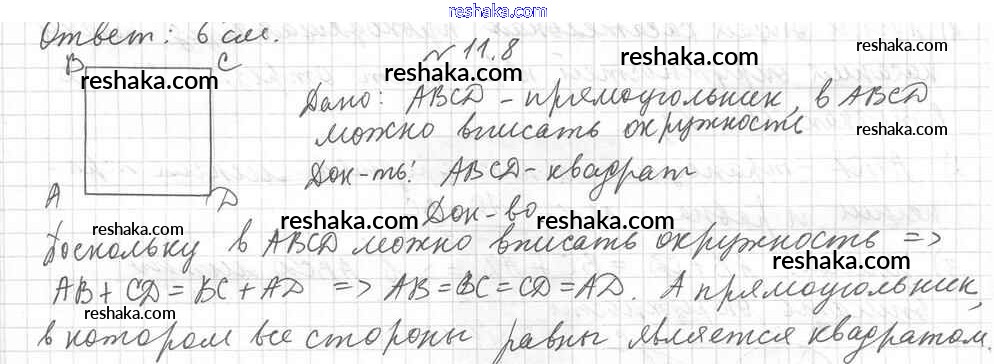 reshaka.com
Ответ: 6 см.
№ 11.8
reshaka.com
reshaka.com
reshaka.com
B C
reshaka.com
Дано: ABCD - прямоугольник, в ABCD
можно вписать окружность
reshaka.com
reshaka.com
Док-ть: ABCD - квадрат
A D
reshaka.com
reshaka.com
reshaka.com
Док-во
Поскольку в ABCD можно вписать окружность =>
reshaka.com
AB + CD = BC + AD => AB = BC = CD = AD. А прямоугольник,
reshaka.com
reshaka.com
в котором все стороны равны является квадратом.